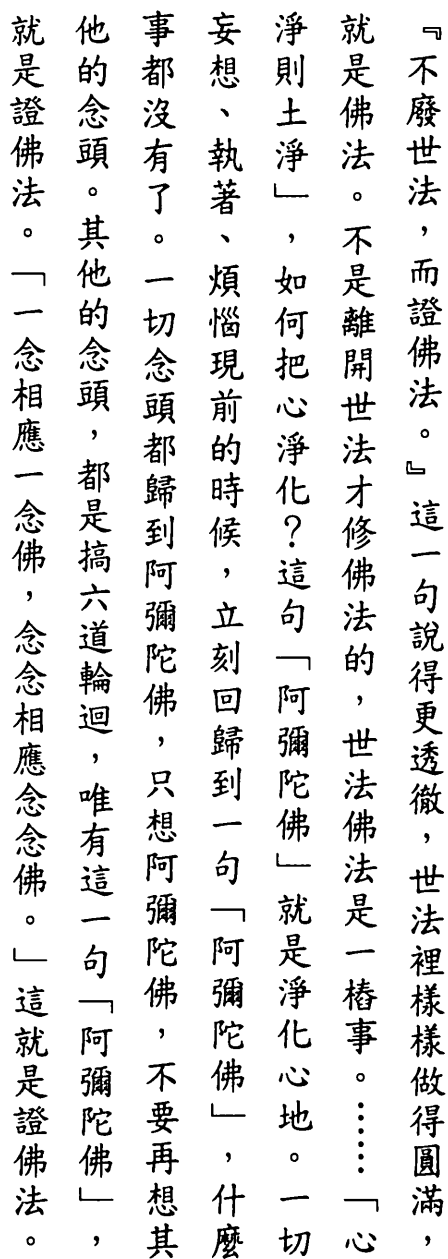 『不廢世法，而證佛法。』這一句說得更透徹，世法裡樣樣做得圓滿，
就是佛法。不是離開世法才修佛法的，世法佛法是一樁事。……「心
淨則土淨」，如何把心淨化？這句「阿彌陀佛」就是淨化心地。一切
妄想、執著、煩惱現前的時候，立刻回歸到一句「阿彌陀佛」，什麼
事都沒有了。一切念頭都歸到阿彌陀佛，只想阿彌陀佛，不要再想其
他的念頭。其他的念頭，都是搞六道輪迴，唯有這一句「阿彌陀佛」，
就是證佛法。「一念相應一念佛，念念相應念念佛。」這就是證佛法。